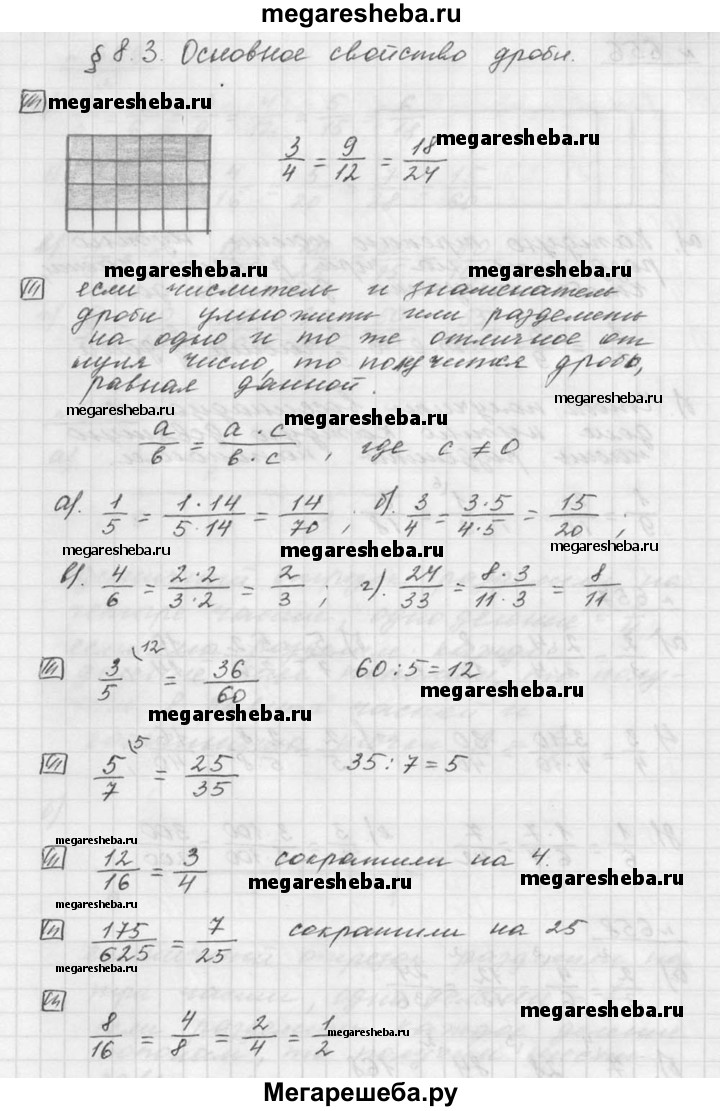 megaresheba.ru
§ 8.3. Основное свойство дроби.
megaresheba.ru
megaresheba.ru
3/4 = 9/12 = 18/24
megaresheba.ru megaresheba.ru
если числитель и знаменатель
дроби умножить или разделить
на одно и то же отличное от
нуля число, то получится дробь,
равная данной.
megaresheba.ru megaresheba.ru
a/в = a · c/в · c , где c ≠ 0
megaresheba.ru
а). 1/5 = 1 · 14/5 · 14 = 14/70 ; б). 3/4 = 3 · 5/4 · 5 = 15/20 ;
megaresheba.ru megaresheba.ru megaresheba.ru
в). 4/6 = 2 · 2/3 · 2 = 2/3 ; г). 24/33 = 8 · 3/11 · 3 = 8/11
megaresheba.ru megaresheba.ru
3/5 \12 = 36/60 60 : 5 = 12
megaresheba.ru
megaresheba.ru
5/7 \5 = 25/35 35 : 7 = 5
megaresheba.ru
megaresheba.ru
12/16 = 3/4 сократили на 4.
megaresheba.ru megaresheba.ru
megaresheba.ru
175/625 = 7/25 сократили на 25
megaresheba.ru
megaresheba.ru
8/16 = 4/8 = 2/4 = 1/2
megaresheba.ru
Мегарешеба.ру